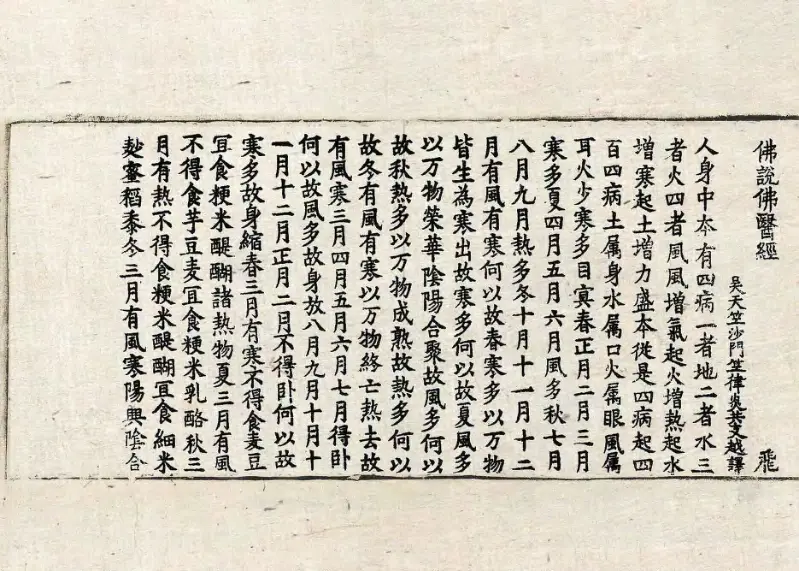 佛說佛醫經 飛
吳天竺沙門竺律炎共支越譯
人身中夲有四病一者地二者水三
者火四者風風增氣起火增熱起水
增寒起土增力盛本從是四病起四
百四病土属身水属口火属眼風属
耳火少寒多目冥春正月二月三月
寒多夏四月五月六月風多秋七月
八月九月熱多冬十月十一月十二
月有風有寒何以故春寒多以万物
皆生為寒出故寒多何以故夏風多
以万物榮華陰陽合聚故風多何以
故秋熱多以万物成熟故熱多何以
故冬有風有寒以万物終亡熱去故
有風寒三月四月五月六月七月得卧
何以故風多故身放八月九月十月十
一月十二月正月二月不得卧何以故
寒多故身縮春三月有寒不得食麦豆
冝食粳米醍醐諸熱物夏三月有風
不得食芋豆麦冝食粳米乳酪秋三
月有熱不得食粳米醍醐冝食細米
麨蜜稻黍冬三月有風寒陽興陰合